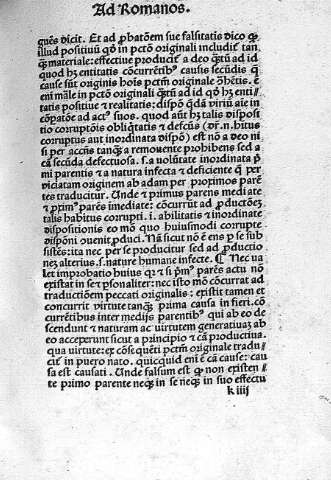 Ad Romanos.
guẽs dicit. Et ad ꝓbatõem sue falsitatis dico ꝙ
illud positiuũ qď in pctõ originali includit̃ tan
ꝙ materiale: effectiue producit̃ a deo q̃ntũ ad id
quod hʒ entitatis cõcurrẽtibꝰ causis secũdis q̃
cause sũt originis hoĩs pctm̃ originale ohẽtis. ẽ
eni male in pctõ originali q̃ntũ ad id qď hʒ enti
tatis positiue et realitatis: dispõ q̃dã viriũ aĩe in
cõpatõe ad actꝰ suos. quod aũt hʒ talis dispositio
corruptõis obliq̃tatis et defectus
corruptus aut inordinata dispõ) est nõ a deo ni
si per accñs tanꝙ a remouente prohibens sed a
cã secũda defectuosa. s. a volũtate inordinata pͥ
mi parentis et a natura infecta et deficiente q̃ per
viciatam originem ab adam per proximos paren
tes traducitur. Unde et primus parens mediate
et ꝓximꝰ parẽs imediate: cõcurrũt ad ꝓductõeʒ
talis habitus corrupti. i. abilitatis et inordinate
dispositionis eo mõ quo huiusmodi corrupte
disponi ꝓduci. Nã sicut nõ ẽ ens ꝑ se sub
sistẽs: ita nec per se producitur sed ad ꝓductio
neʒ alterius. s. nature humane infecte. ¶ Nec ua
let improbatio huius qꝛ et si pͥmꝰ parẽs actu nõ
existat in se et ꝑsonaliter: nec isto mõ cõcurrat ad
traductiõem peccati originalis: existit tamen et
concurrit virtute tanꝙ prima causa in fieri. cõ
currẽtibus inter medijs parentibꝰ qui ab eo de
scendunt et naturam ac virtutem generatiuaʒ ab
eo acceperunt sicut a principio et cã productiua.
qua virtute: ex cõsequẽti pctm̃ originale tradu
cit̃ in puero nato. quicquid eni ẽ cã cause: cau
sa est causati. Unde falsum est ꝙ non existen
te primo parente neqʒ in se neqʒ in suo effectu
k iiij